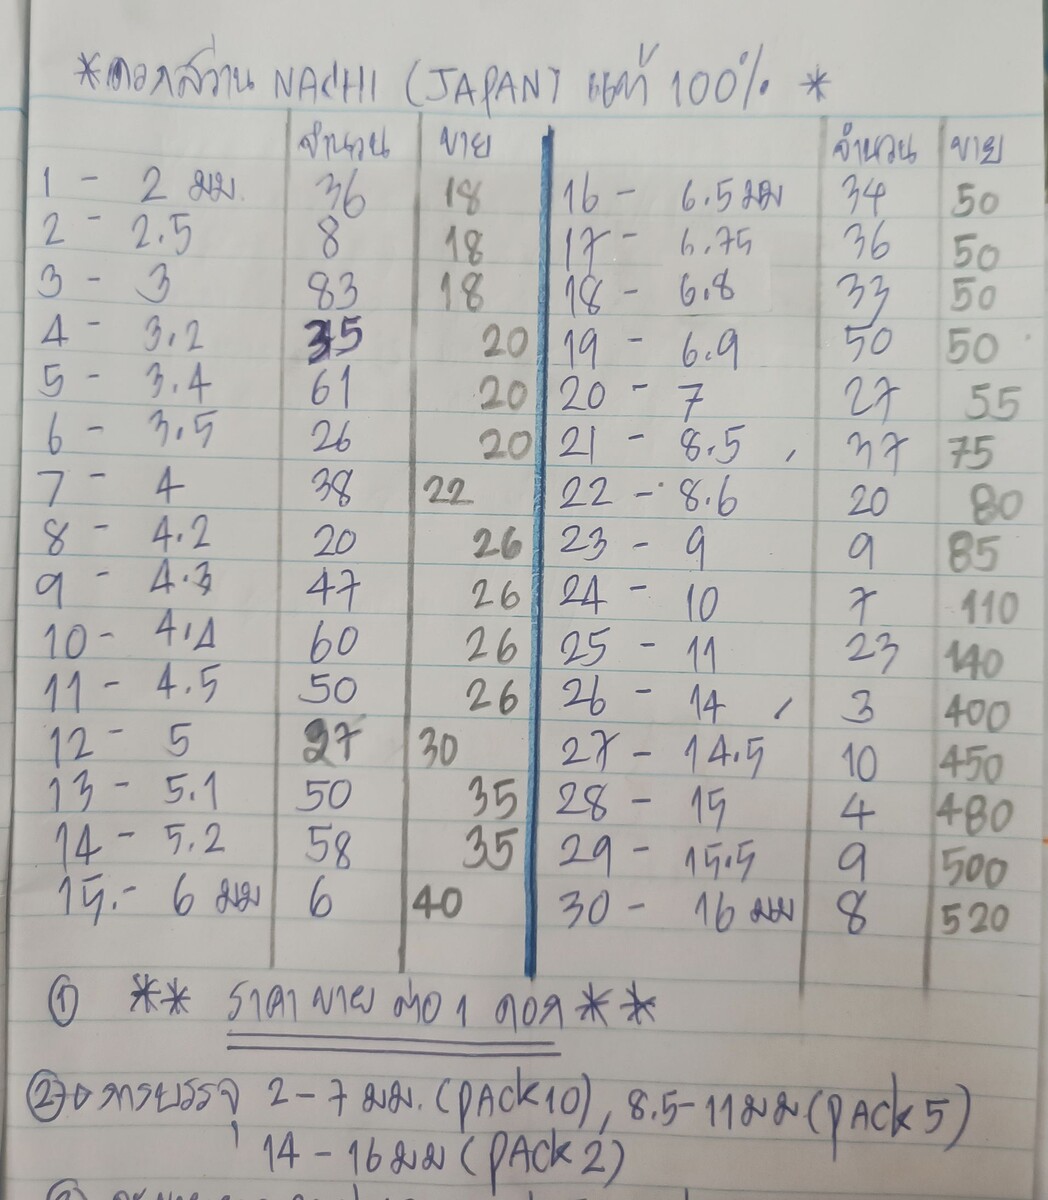 *ดอกสว่าน NACHI (JAPAN) แท้ 100% *
จำนวน ขาย จำนวน ขาย
1 - 2 มม. 36 18 16 - 6.5 มม 34 50
2 - 2.5 8 18 17 - 6.75 36 50
3 - 3 83 18 18 - 6.8 33 50
4 - 3.2 35 20 19 - 6.9 50 50
5 - 3.4 61 20 20 - 7 27 55
6 - 3.5 26 20 21 - 8.5 37 75
7 - 4 38 22 22 - 8.6 20 80
8 - 4.2 20 26 23 - 9 9 85
9 - 4.3 47 26 24 - 10 7 110
10 - 4.4 60 26 25 - 11 23 140
11 - 4.5 50 26 26 - 14 3 400
12 - 5 27 30 27 - 14.5 10 450
13 - 5.1 50 35 28 - 15 4 480
14 - 5.2 58 35 29 - 15.5 9 500
15.- 6 มม 6 40 30 - 16 มม 8 520
① ** ราคาขายต่อ 1 ดอก **
② การบรรจุ 2 - 7 มม. (PACK 10), 8.5-11 มม (PACK 5)
14 - 16 มม (PACK 2)